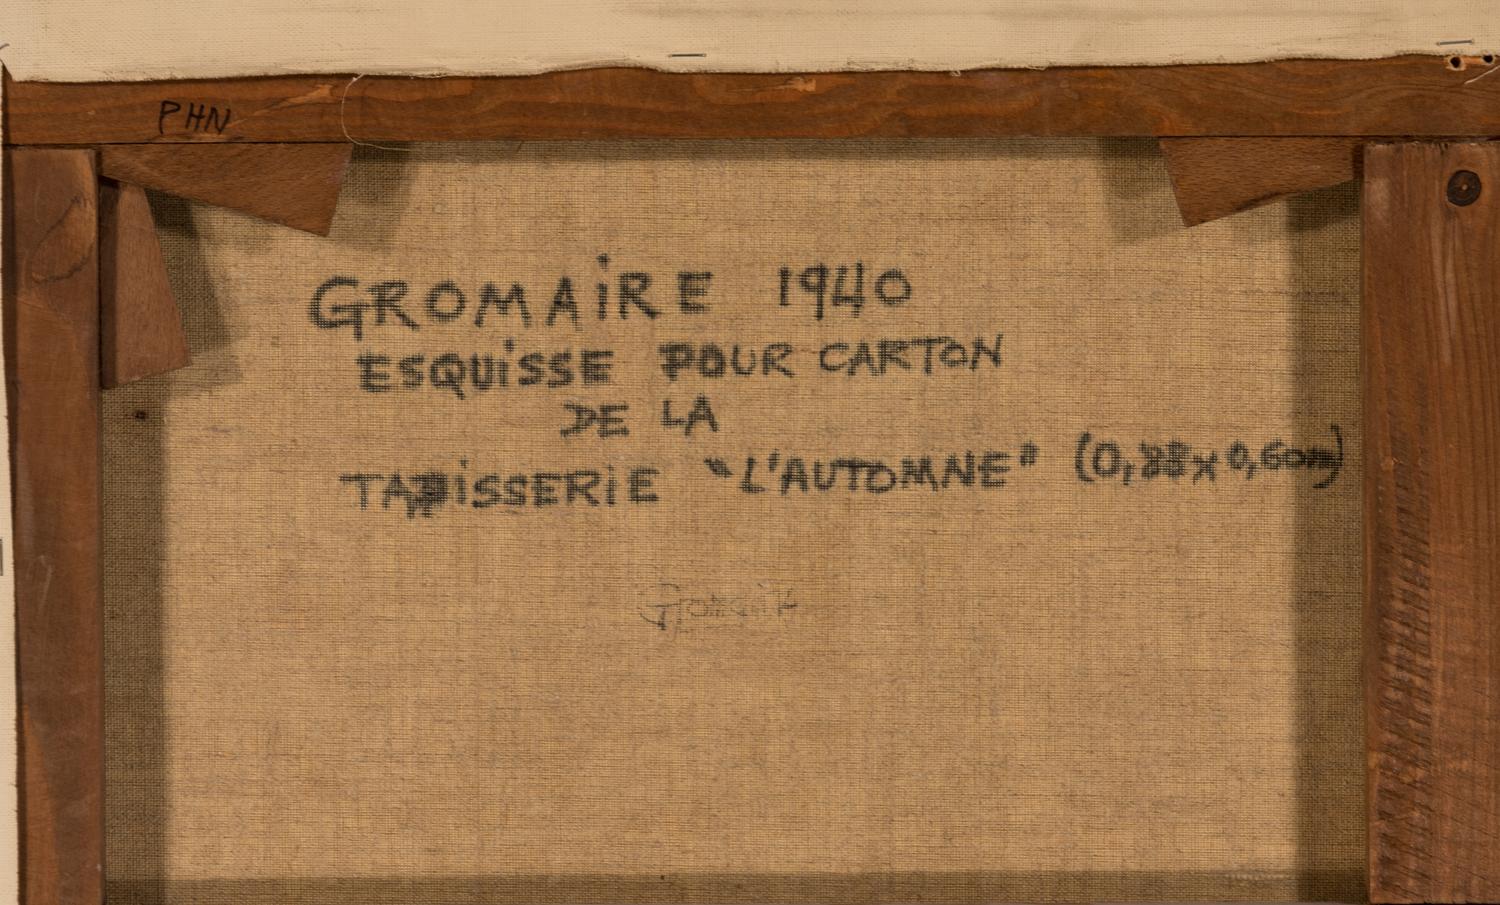 PHN
GROMAiRE 1940
ESQUiSSE POUR CARTON
DE LA
TAPiSSERiE "L'AUTOMNE" (0,88 x 0,60m)